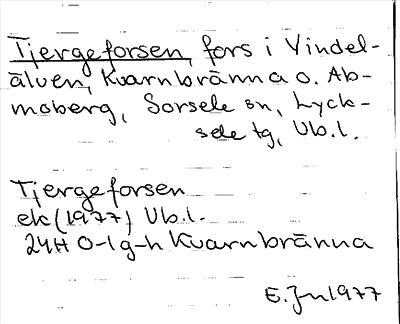 Tjergeforsen, fors i Vindel-
älven, Kvarnbränna o. Ab-
moberg, Sorsele sn, Lyck-
sele tg, Vb.l.
Tjergeforsen
ek (1977) Vb.l.
24H 0-1 g-h Kvarnbränna
E. Jn 1977